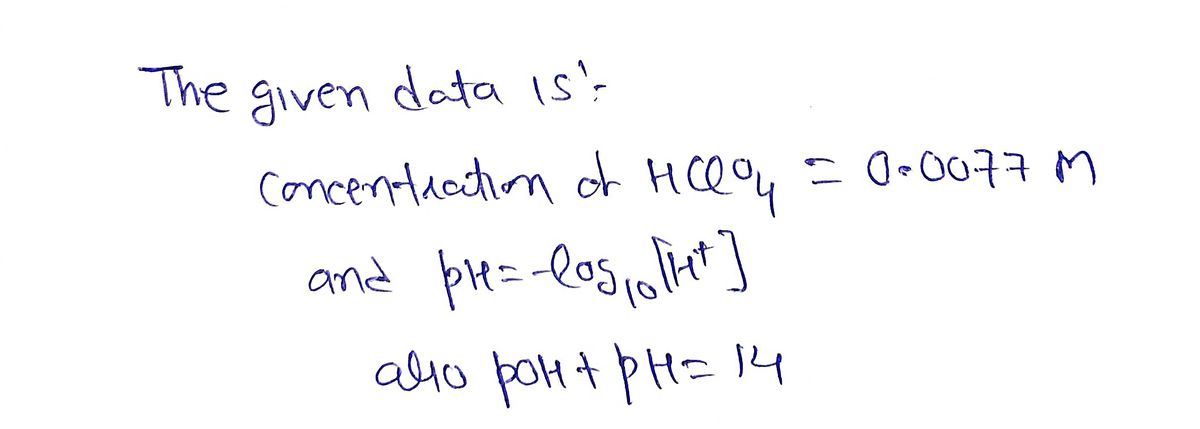 The given data is:-
Concentration of HClO4 = 0.0077 M
and pH=-log10[H+]
also pOH + pH= 14